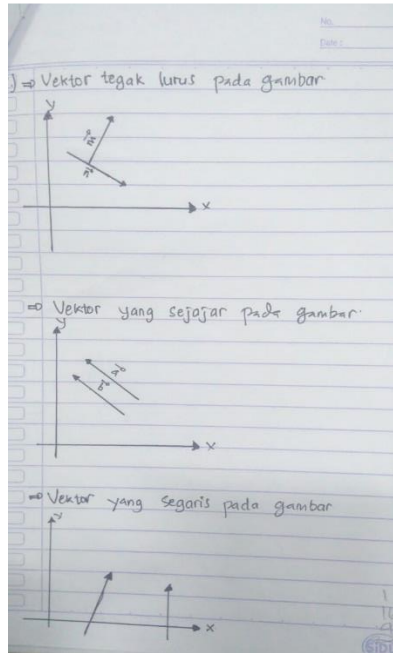 No.
Date:
.) ⇒ Vektor tegak lurus pada gambar
y
m
n
x
⇒ Vektor yang sejajar pada gambar.
y
a
b
x
⇒ Vektor yang segaris pada gambar
y
x